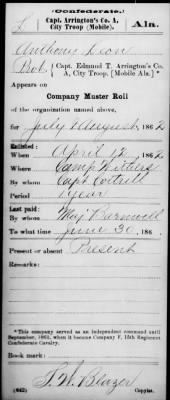 (Confederate.)
L Capt. Arrington's Co. A, City Troop (Mobile). Ala.
Anthony Leon
Pvt., Capt. Edmund T. Arrington's Co. A, City Troop (Mobile Ala.)*
Appears on
Company Muster Roll
of the organization named above,
for July & August, 1862.
Enlisted:
When April 12, 1862.
Where Camp Withers
By whom Capt Cottrill
Period 1 year
Last paid:
By whom Maj Barnwell
To what time June 30, 186
Present or absent Present
Remarks:
*This company served as an independent command until
September, 1863, when it became Company F, 15th Regiment
Confederate Cavalry.
Book mark:
(642) Copyist.